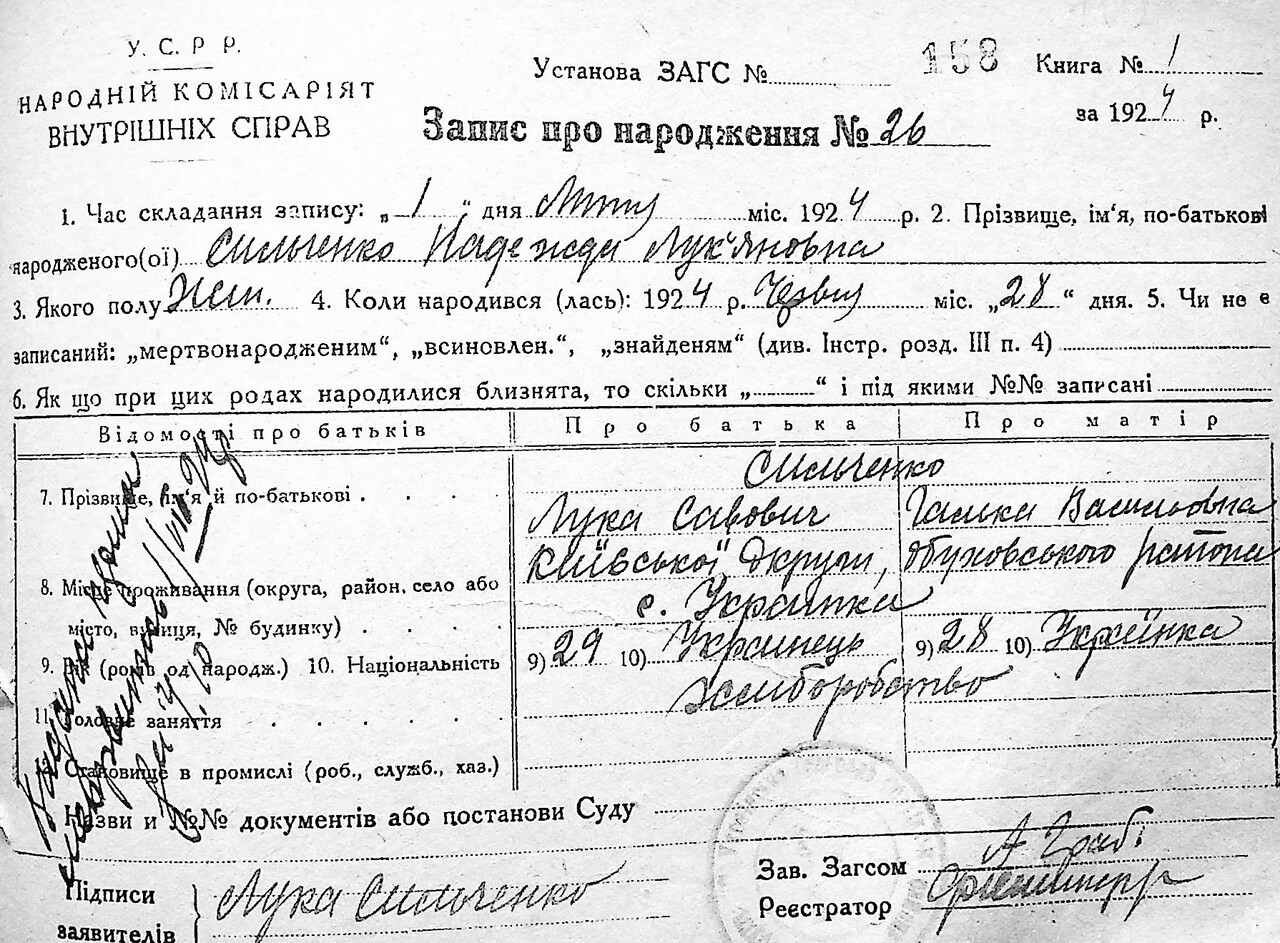 У. С. Р. Р.
НАРОДНІЙ КОМІСАРІЯТ
ВНУТРІШНІХ СПРАВ
Установа ЗАГС № 158 Книга № 1
за 1924 р.
Запис про народження № 26
1. Час складання запису: „1“ дня міс. 1924 р. 2. Прізвище, ім‘я, по-батькові
народженого(ої) Сильченко Надежда Лук‘яновна
3. Якого полу Жен. 4. Коли народився (лась): 1924 р. міс. „28“ дня. 5. Чи не є
записаний: „мертвонародженим“, „всиновлен.“, „знайденям“ (див. Інстр. розд. III п. 4)
6. Як що при цих родах народилися близнята, то скільки „ “ і під якими №№ записані
Відомості про батьків Про батька Про матір
7. Прізвище, ім‘я й по-батькові Сильченко
Лука Савович Васильовна
8. Місце проживання (округа, район, село або Київської Округи, району
місто, вулиця, № будинку) с. Українка
9. Вік (років од народж.) 10. Національність 9) 29 10) Українець 9) 28 10) Українка
11. Головне заняття хлиборобство
12. Становище в промислі (роб., служб., хаз.)
Назви и №№ документів або постанови Суду
Зав. Загсом
Підписи
заявителів Лука Сильченко
Реєстратор